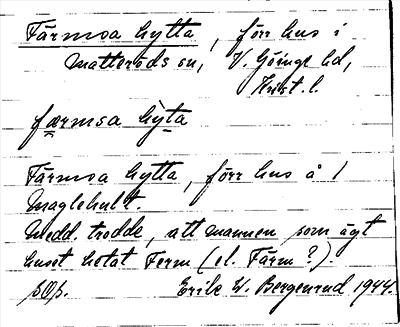 Färmsa hytta, förr hus i
Matteröds sn, V. Göinge hd,
Krist. l.
færmsa hy̍ta
Färmsa hytta, förr hus å 1
Maglehult.
Medd. trodde, att mannen som ägt
huset hetat Ferm (el. Färm ?).
Erik W. Bergenrud 1944.